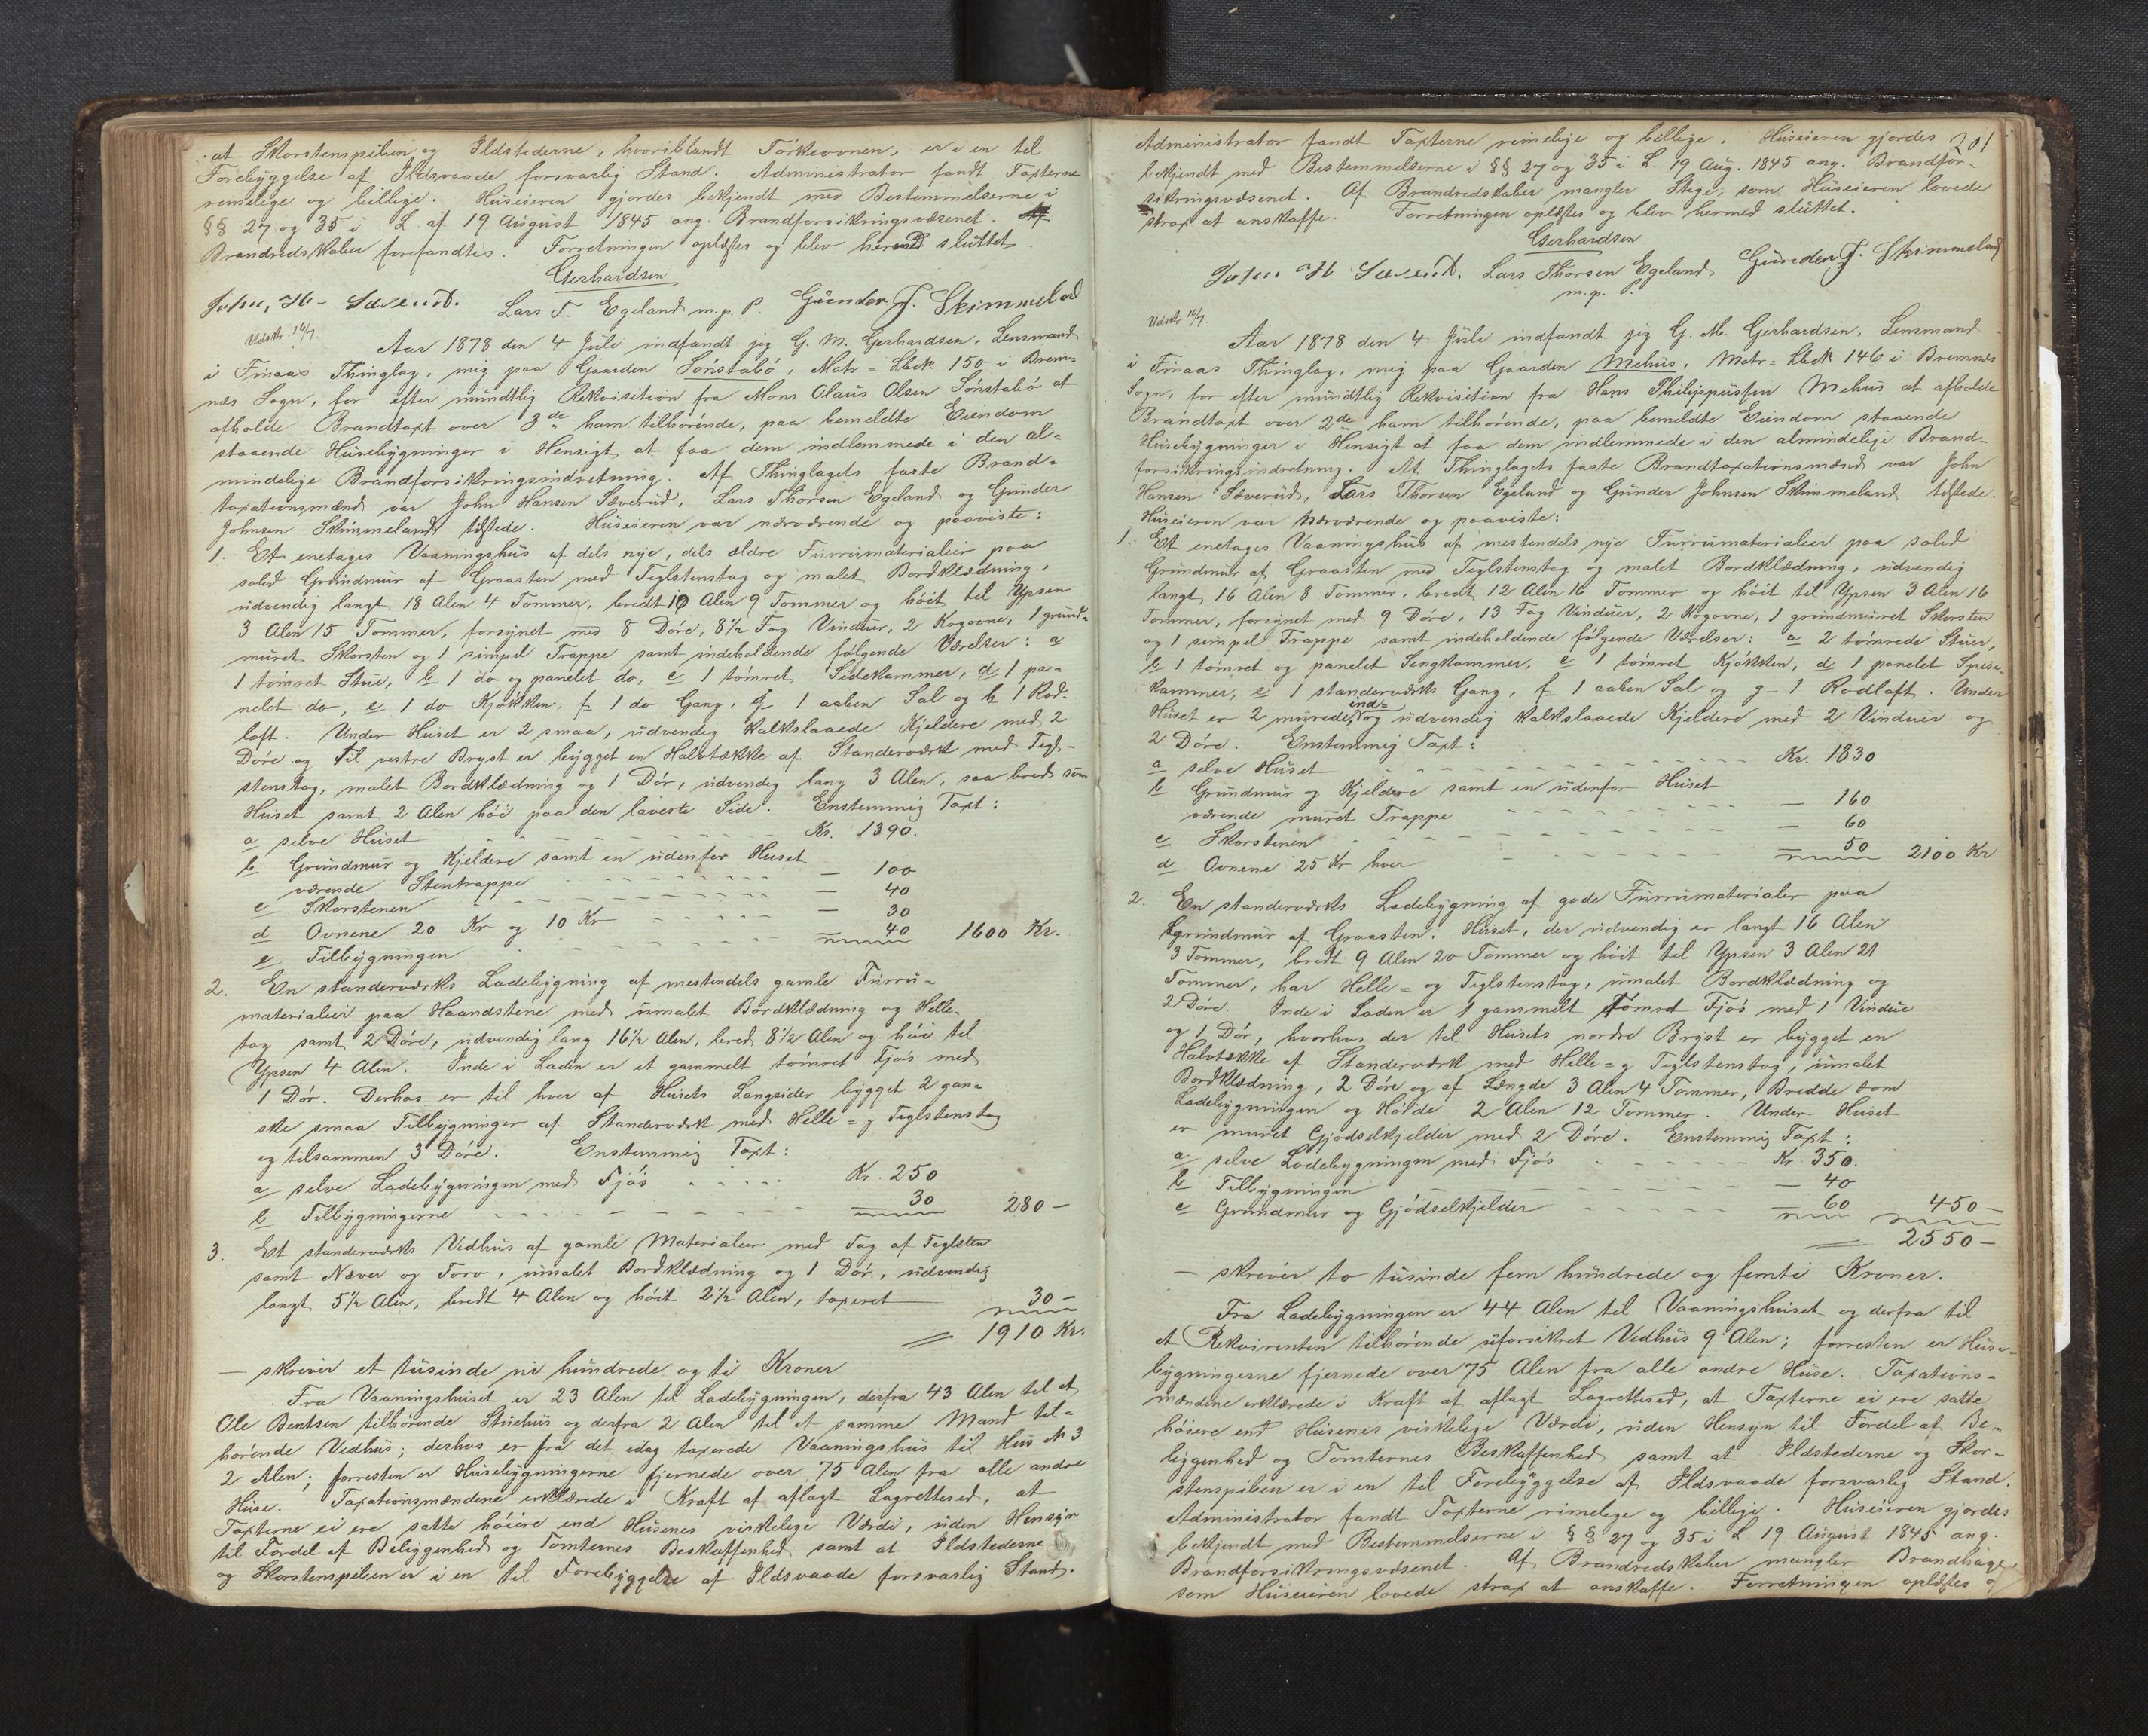 at Skorstenspiben og Ildstederne, hvoriblandt Tørkeovnen, er i en til
Forebyggelse af Ildsvaade forsvarlig Stand. Administrator fandt Taxterne
rimelige og billige. Huseieren gjordes bekjendt med Bestemmelserne i
§§ 27 og 35 i L. af 19 August 1845 ang. Brandforsikringsvæsenet.
Brandredskaber forefandtes. Forretningen oplæstes og blev hermed sluttet.
Gerhardsen
John, H- Sæverud. Lars T. Egeland m.p.P. Gunder J. Skimmeland
Udskr. 16/7.
Aar 1878 den 4 Juli indfandt jeg G. M. Gerhardsen, Lensmand
i Finaas Thinglag, mig paa Gaarden Sønstabø, Matr=Lbek 150 i Brem=
næs Sogn, for efter mundtlig Rekvisition fra Mons Olaus Olsen Sønstabø at
afholde Brandtaxt over 3de ham tilhørende, paa bemeldte Eiendom
staaende Husebygninger i Hensigt at faa dem indlemmede i den al=
mindelige Brandforsikringsindretning. Af Thinglagets faste Brand=
taxationsmænd var John Hansen Sæverud, Lars Thorsen Egeland og Gunder
Johnsen Skimmeland tilstede. Huseieren var nærværende og paaviste:
1. Et enetages Vaaningshus af dels nye, dels ældre Furrumaterialier paa
solid Grundmur af Graasten med Teglstenstag og malet Bordklædning,
udvendig langt 18 Alen 4 Tommer, bredt 10 Alen 9 Tommer og høit til Ypsen
3 Alen 15 Tommer, forsynet med 8 Døre, 8½ Fag Vinduer, 2 Kogovne, 1 grund=
muret Skorsten og 1 simpel Trappe samt indeholdende følgende Værelser: a
1 tømret Stue, b 1 do og panelet do, c 1 tømret Sidekammer, d 1 pa=
nelet do, e 1 do Kjøkken, f 1 do Gang, g 1 aaben Sal og h 1 Rod=
loft. Under Huset er 2 smaa, udvendig kalkslaaede Kjeldere med 2
Døre og til vestre Bryst er bygget en Halvtække af Standerværk med Tegl-
stenstag, malet Bordklædning og 1 Dør, udvendig lang 3 Alen, saa bred som
Huset samt 2 Alen høi paa den laveste Side. Enstemmig Taxt:
a selve Huset Kr. 1390.
b Grundmur og Kjeldere samt en udenfor Huset
værende Stentrappe — 100
c Skorstenen — 40
d Ovnene 20 Kr og 10 Kr — 30
e Tilbygningen — 40 1600 Kr.
2. En standerværks Ladebygning af mestendels gamle Furru=
materialier paa Haandstene med umalet Bordklædning og Helle
tag samt 2 Døre, udvendig lang 16½ Alen, bred 8½ Alen og høi til
Ypsen 4 Alen. Inde i Laden er et gammelt tømret Fjøs med
1 Dør. Derhos er til hver af Husets Langsider bygget 2 gan=
ske smaa Tilbygninger af Standerværk med Helle= og Teglstenstag
og tilsammen 3 Døre. Enstemmig Taxt:
a selve Ladebygningen med Fjøs Kr. 250
b Tilbygningerne 30 280 —
3. Et standerværks Vedhus af gamle Materialier med Tag af Teglsten
samt Næver og Torv, umalet Bordklædning og 1 Dør, udvendig
langt 5½ Alen, bredt 4 Alen og høit 2½ Alen, taxeret 30 —
= 1910 Kr.
— skriver et tusinde ni hundrede og ti Kroner
Fra Vaaningshuset er 23 Alen til Ladebygningen, derfra 43 Alen til et
Ole Bentsen tilhørende Stuehus og derfra 2 Alen til et samme Mand til=
hørende Vedhus; derhos er fra det idag taxerede Vaaningshus til Hus № 3
2 Alen; forresten er Husebygningerne fjernede over 75 Alen fra alle andre
Huse. Taxationsmændene erklærede i Kraft af aflagt Lagrettesed, at
Taxterne ei ere satte høiere end Husenes virkelige Værdi, uden Hensyn
til Fordel af Beliggenhed og Tomternes Beskaffenhed samt at Ildstederne
og Skorstenspiben er i en til Forebyggelse af Ildsvaade forsvarlig Stand.
201
Administrator fandt Taxterne rimelige og billige. Huseieren gjordes
bekjendt med Bestemmelserne i §§ 27 og 35 i L. 19 Aug. 1845 ang. Brandfor-
sikringsvæsenet. Af Brandredskaber mangler Stige, som Huseieren lovede
strax at anskaffe. Forretningen oplæstes og blev hermed sluttet.
Gerhardsen
John H Sæverud. Lars Thorsen Egeland Gunder J. Skimmeland
m.p.P.
Udskr 16/7.
Aar 1878 den 4 Juli indfandt jeg G. M. Gerhardsen, Lensmand
i Finaas Thinglag, mig paa Gaarden Mehus, Matr=Lbek 146 i Bremnes
Sogn, for efter mundtlig Rekvisition fra Hans Philippussen Mehus at afholde
Brandtaxt over 2de ham tilhørende, paa bemeldte Eiendom staaende
Husebygninger i Hensigt at faa dem indlemmede i den almindelige Brand=
forsikringsindretning. Af Thinglagets faste Brandtaxationsmænd var John
Hansen Sæverud, Lars Thorsen Egeland og Gunder Johnsen Skimmeland tilstede.
Huseieren var nærværende og paaviste:
1. Et enetages Vaaningshus af mestendels nye Furrumaterialier paa solid
Grundmur af Graasten med Teglstenstag og malet Bordklædning, udvendig
langt 16 Alen 8 Tommer, bredt 12 Alen 16 Tommer og høit til Ypsen 3 Alen 16
Tommer, forsynet med 9 Døre, 13 Fag Vinduer, 2 Kogovne, 1 grundmuret Skorsten
og 1 simpel Trappe samt indeholdende følgende Værelser: a 2 tømrede Stuer,
b 1 tømret og panelet Sengkammer, c 1 tømret Kjøkken, d 1 panelet Spise-
kammer, e 1 standerværks Gang, f 1 aaben Sal og g 1 Rodloft. Under
Huset er 2 murede, ind= og udvendig kalkslaaede Kjeldere med 2 Vinduer og
2 Døre. Enstemmig Taxt:
a selve Huset Kr. 1830
b Grundmur og Kjeldere samt en udenfor Huset
værende muret Trappe — 160
c Skorstenen — 60
d Ovnene 25 Kr hver 50 2100 Kr
2. En standerværks Ladebygning af gode Furrumaterialer paa
grundmur af Graasten. Huset, der udvendig er langt 16 Alen
3 Tommer, bredt 9 Alen 20 Tommer og høit til Ypsen 3 Alen 21
Tommer, har Helle= og Teglstenstag, umalet Bordklædning og
2 Døre. Inde i Laden er 1 gammelt tømret Fjøs med 1 Vindue
og 1 Dør, hvorhos der til Husets nordre Bryst er bygget en
Halvtække af Standerværk med Helle= og Teglstenstag, umalet
Bordklædning, 2 Døre og af Længde 3 Alen 4 Tommer, Bredde som
Ladebygningen og Høide 2 Alen 12 Tommer. Under Huset
er muret Gjødselkjelder med 2 Døre. Enstemmig Taxt:
a selve Ladebygningen med Fjøs Kr. 350.
b Tilbygningen — 40
c Grundmur og Gjødselkjelder — 60 450 —
= 2550 —
— skriver to tusinde fem hundrede og femti Kroner.
Fra Ladebygningen er 44 Alen til Vaaningshuset og derfra til
et Rekvirenten tilhørende uforsikret Vedhus 9 Alen; forresten er Huse-
bygningerne fjernede over 75 Alen fra alle andre Huse. Taxations=
mændene erklærede i Kraft af aflagt Lagrettesed, at Taxterne ei ere satte
høiere end Husenes virkelige Værdi, uden Hensyn til Fordel af Be-
liggenhed og Tomternes Beskaffenhed samt at Ildstederne og Skor-
stenspiben er i en til Forebyggelse af Ildsvaade forsvarlig Stand.
Administrator fandt Taxterne rimelige og billige. Huseieren gjordes
bekjendt med Bestemmelserne i §§ 27 og 35 i L. 19 August 1845 ang.
Brandforsikringsvæsenet. Af Brandredskaber mangler Brandhage
som Huseieren lovede strax at anskaffe. Forretningen oplæstes og